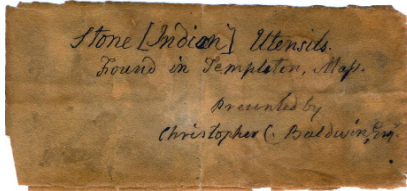 Stone [Indian] Utensils.
Found in Templeton, Mass.
Presented by
Christopher C. Baldwin, Esq.